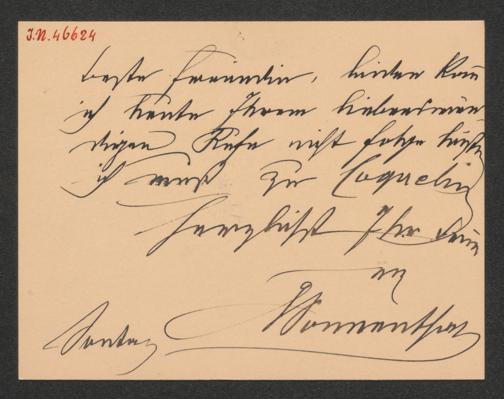 I.N. 46624
beste Freundin, leider kann
ich heute Ihrem liebenswür-
digen Rufe nicht Folge leisten
ich muß zu Coquelin
Herzlichst Ihr
Sonnenthal
Sontag